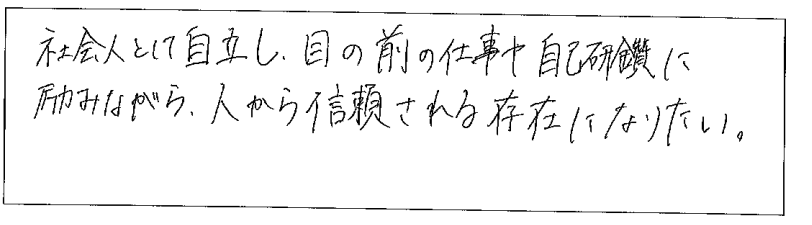 社会人として自立し、目の前の仕事や自己研鑽に
励みながら、人から信頼される存在になりたい。